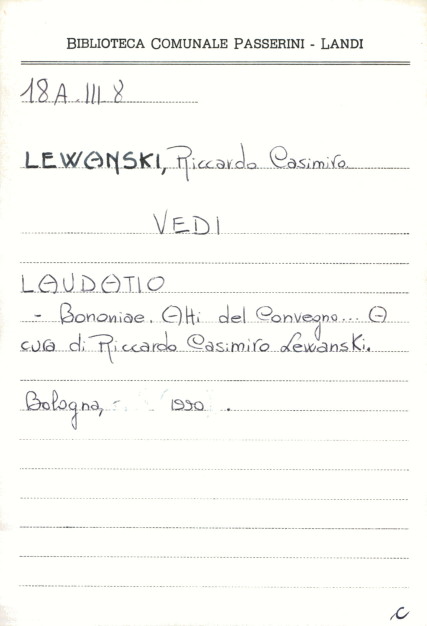 BIBLIOTECA COMUNALE PASSERINI - LANDI
18A.III 8
LEWANSKI, Riccardo Casimiro
VEDI
LAUDATIO
- Bononiae. Atti del Convegno... A
cura di Riccardo Casimiro Lewanski.
Bologna, 1990 .
C